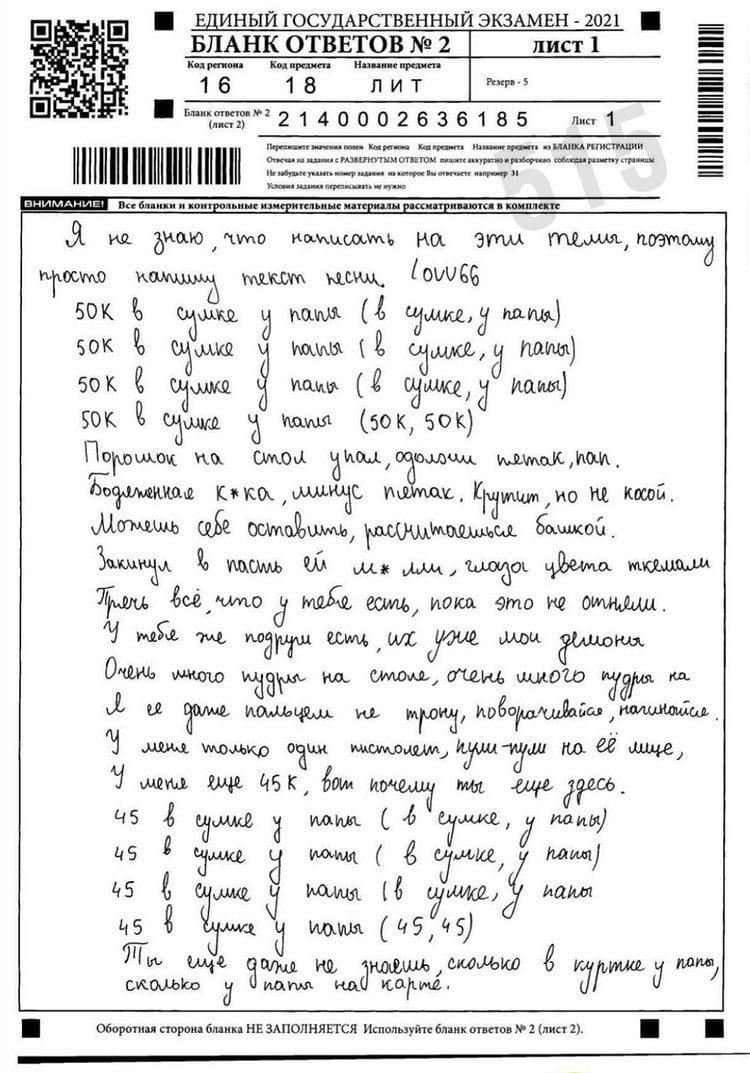 ЕДИНЫЙ ГОСУДАРСТВЕННЫЙ ЭКЗАМЕН - 2021
БЛАНК ОТВЕТОВ № 2 лист 1
Код региона Код предмета Название предмета
16 18 ЛИТ Резерв - 5
Бланк ответов № 2 (лист 2) 2140002636185 Лист 1
Перепишите значения полей Код региона Код предмета Название предмета из БЛАНКА РЕГИСТРАЦИИ
Отвечая на задания с РАЗВЕРНУТЫМ ОТВЕТОМ пишите аккуратно и разборчиво соблюдая разметку страницы
Не забудьте указать номер задания на которое Вы отвечаете например 31
Условия задания переписывать не нужно
515
ВНИМАНИЕ! Все бланки и контрольные измерительные материалы рассматриваются в комплекте
Я не знаю, что написать на эти темы, поэтому
просто напишу текст песни. lovv66
50К в сумке у папы (в сумке, у папы)
50К в сумке у папы (в сумке, у папы)
50К в сумке у папы (в сумке, у папы)
50К в сумке у папы (50К, 50К)
Порошок на стол упал, одолжи пятак, пап.
Бодяженная к*ка, минус пятак. Крутит, но не косой.
Можешь себе оставить, рассчитаешься башкой.
Закинул в пасть ей м* лли, глаза цвета ткемали
Прячь всё, что у тебя есть, пока это не отняли.
У тебя же подруги есть, их уже мои демоны
Очень много пудры на столе, очень много пудры на
Я ее даже пальцем не трону, поворачивайся, начинайся.
У меня только один пистолет, пули-пули на её лице,
У меня еще 45К, вот почему ты еще здесь.
45 в сумке у папы ( в сумке, у папы)
45 в сумке у папы ( в сумке, у папы)
45 в сумке у папы (в сумке, у папы
45 в сумке у папы (45, 45)
Ты еще даже не знаешь, сколько в куртке у папы,
сколько у папы на карте.
Оборотная сторона бланка НЕ ЗАПОЛНЯЕТСЯ Используйте бланк ответов № 2 (лист 2).